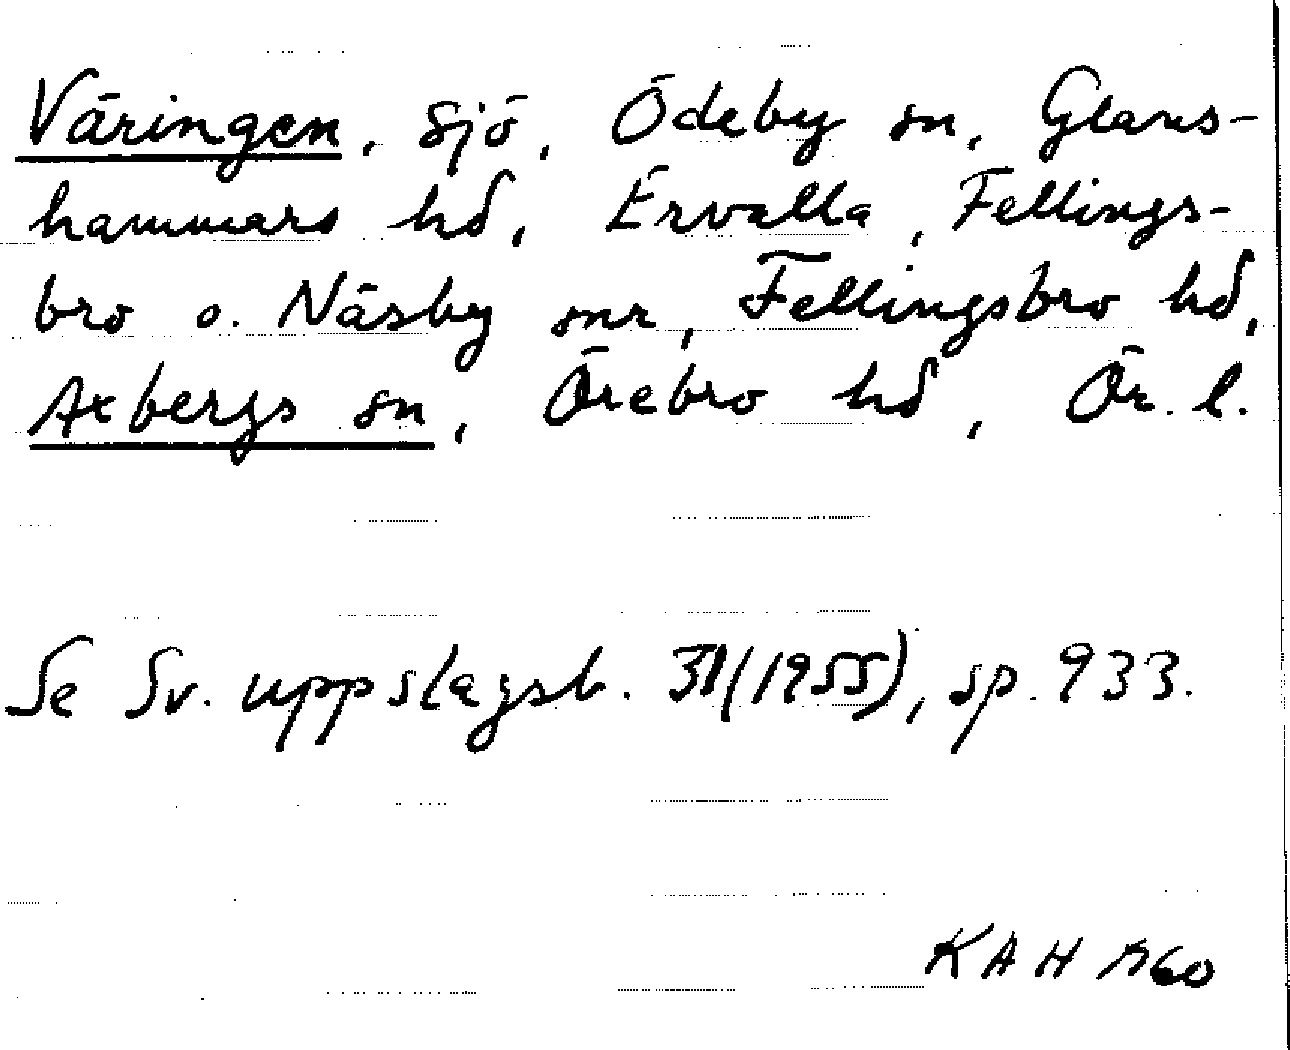 Väringen, sjö, Ödeby sn, Glans-
hammars hd, Ervalla, Fellings-
bro o. Näsby snr, Fellingsbro hd,
Axbergs sn, Örebro hd, Ör. l.
Se Sv. uppslagsb. 31 (1955), sp. 933.
KAH 1960